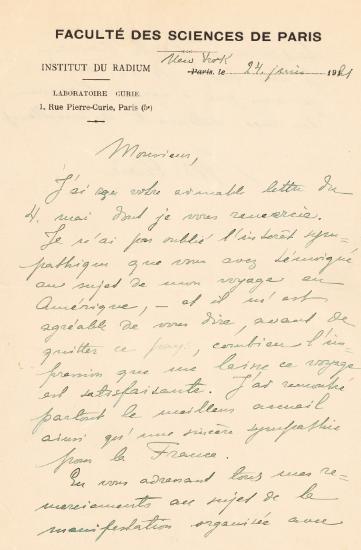 FACULTÉ DES SCIENCES DE PARIS
INSTITUT DU RADIUM
LABORATOIRE CURIE
1, Rue Pierre-Curie, Paris (5e)
New York
Paris, le 24 juin 1921
Monsieur,
J'ai reçu votre aimable lettre du
4. mai dont je vous remercie.
Je n'ai pas oublié l'intérêt sym-
pathique que vous avez témoigné
au sujet de mon voyage en
Amérique, – et il m'est
agréable de vous dire, avant de
quitter ce pays, combien l'im-
pression que me laisse ce voyage
est satisfaisante. J'ai rencontré
partout le meilleur accueil
ainsi qu'une sincère sympathie
pour la France.
En vous adressant tous mes re-
merciements au sujet de la
manifestation organisée avec